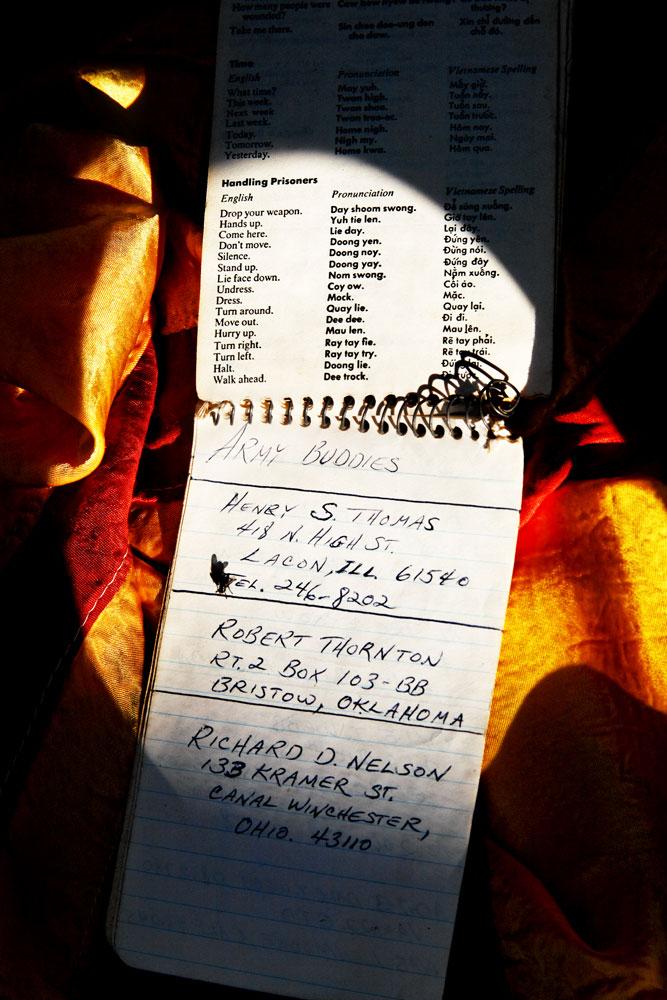 How many people were
wounded?
thương?
Take me there.
Sin chee doo-ung don
cho daw.
Xin chỉ đường dẫn
chỗ đó.
Time
English Pronunciation Vietnamese Spelling
What time? May yuh. Mấy giờ.
This week. Twan nigh. Tuần nầy.
Next week Twan shoe. Tuần sau.
Last week. Twan troo-oc. Tuần trước.
Today. Home nigh. Hôm nay.
Tomorrow. Nigh my. Ngày mai.
Yesterday. Home kwa. Hôm qua.
Handling Prisoners
English Pronunciation Vietnamese Spelling
Drop your weapon. Day shoom swong. Để súng xuống.
Hands up. Yuh tie len. Giơ tay lên.
Come here. Lie day. Lại đây.
Don't move. Doong yen. Đứng yên.
Silence. Doong noy. Đừng nói.
Stand up. Doong yay. Đứng đây
Lie face down. Nom swong. Nằm xuống.
Undress. Coy ow. Cởi áo.
Dress. Mock. Mặc.
Turn around. Quay lie. Quay lại.
Move out. Dee dee. Đi đi.
Hurry up. Mau len. Mau lên.
Turn right. Ray tay fie. Rẽ tay phải.
Turn left. Ray tay try. Rẽ tay trái.
Halt. Doong lie.
Walk ahead. Dee trock.
ARMY BUDDIES
HENRY S. THOMAS
418 N. HIGH ST.
LACON, ILL. 61540
TEL. 246-8202
ROBERT THORNTON
RT. 2 BOX 103-BB
BRISTOW, OKLAHOMA
RICHARD D. NELSON
133 KRAMER ST.
CANAL WINCHESTER,
OHIO. 43110